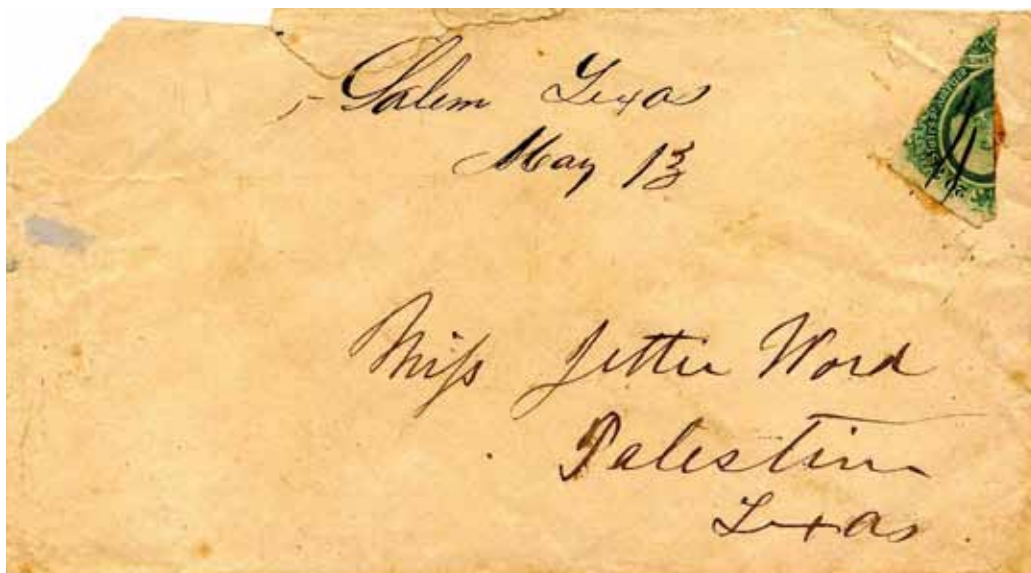 Salem Texas
May 13
Miss Jettie Word
Palestine
Texas